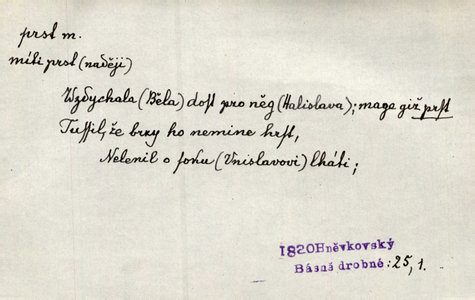 prst m.
míti prst (naději)
Wzdychala (Běla) dost pro něg (Halislava); maga giž prst
Tussil, že brzy ho nemine hrst,
Nelenil o foku (Vnislavovi) lháti;
1820 Hněvkovský
Básně drobné: 25, 1.